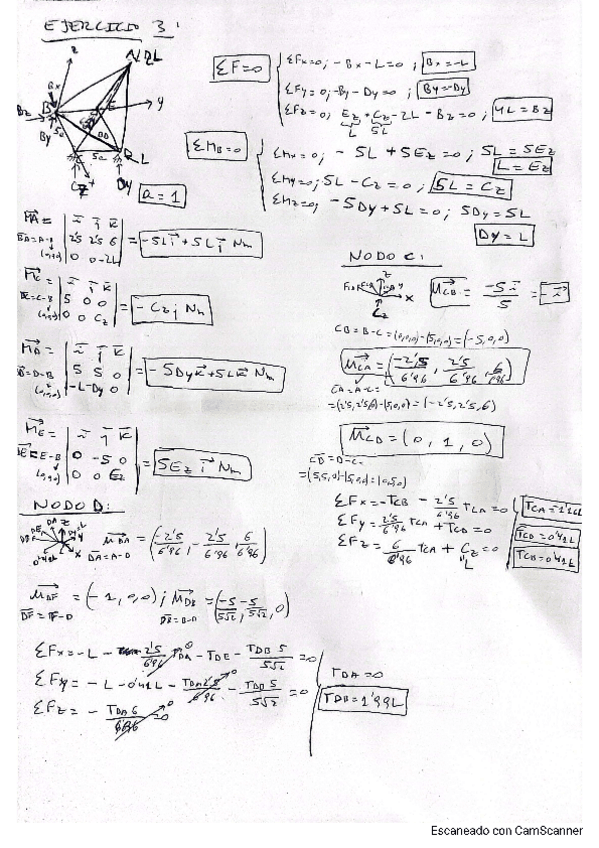 EJERCICIO 3:
z
2L
Bx
B
E
y
Bz
By
5a
5a
C
D
L
Cz
Dy
a = 1
ΣF=0
ΣFx=0; -Bx-L=0; Bx=-L
ΣFy=0; -By-Dy=0; By=-Dy
ΣFz=0; Ez+Cz-2L-Bz=0; 4L=Bz
L 5L
ΣMB=0
ΣMx=0; -5L+5Ez=0; 5L=5Ez
L=Ez
ΣMy=0; 5L-Cz=0; 5L=Cz
ΣMz=0; -5Dy+5L=0; 5Dy=5L
Dy=L
MA = | i j k | 2'5 2'5 6 | 0 0 -2L | = -5Li+5Lj Nm
BA=A-B
(0,0,0)
MC = | i j k | 5 0 0 | 0 0 Cz | = -Czj Nm
BC=C-B
(0,0,0)
MD = | i j k | 5 5 0 | -L -Dy 0 | = -5Dyk+5Lk Nm
BD=D-B
(0,0,0)
ME = | i j k | 0 -5 0 | 0 0 Ez | = 5Ez i Nm
BE=E-B
(0,0,0)
NODO C:
z
x
Cz
μCB = -5i/5 = -i
CB=B-C=(0,0,0)-(5,0,0)=(-5,0,0)
μCA = (-2'5/6'96, 2'5/6'96, 6/6'96)
CA=A-C
=(2'5,2'5,6)-(5,0,0)=(-2'5,2'5,6)
μCD = (0, 1, 0)
CD=D-C
=(5,5,0)-(5,0,0)=(0,5,0)
ΣFx=-TCB - 2'5/6'96 TCA=0
ΣFy= 2'5/6'96 TCA + TCD=0
ΣFz= 6/6'96 TCA + Cz=0
L
TCD=0'41L
TCB=0'41L
NODO D:
0'41L
DA=A-D
μDA = (-2'5/6'96, -2'5/6'96, 6/6'96)
= (-1,0,0); μDB = (-5/5√2, -5/5√2, 0)
DB=B-D
ΣFx=-L - 2'5/6'96 TDA - TDE - TDB 5/5√2 =0
ΣFy=-L-0'41L - TDA 2'5/6'96 - TDB 5/5√2 =0
ΣFz=- TDA 6/6'96 =0
TDA=0
TDB=1'99L
Escaneado con CamScanner